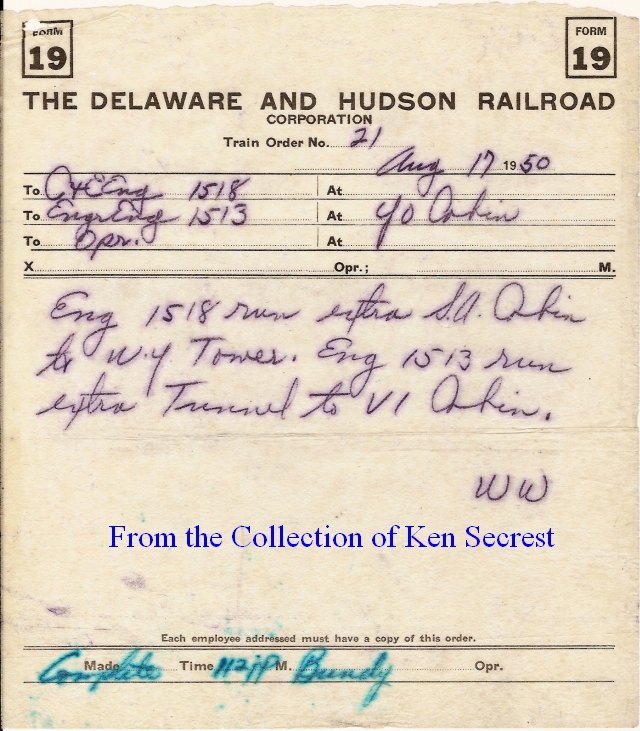 FORM 19 FORM 19
THE DELAWARE AND HUDSON RAILROAD
CORPORATION
Train Order No. 21
Aug 17 1950
To C&E Eng 1518 At
To Engr Eng 1513 At YO Cabin
To Opr. At
X Opr.; M.
Eng 1518 run extra S.A. Cabin
to W.Y. Tower. Eng 1513 run
extra Tunnel to VI Cabin.
WW
From the Collection of Ken Secrest
Each employee addressed must have a copy of this order.
Made Complete Time M. Bundy Opr.